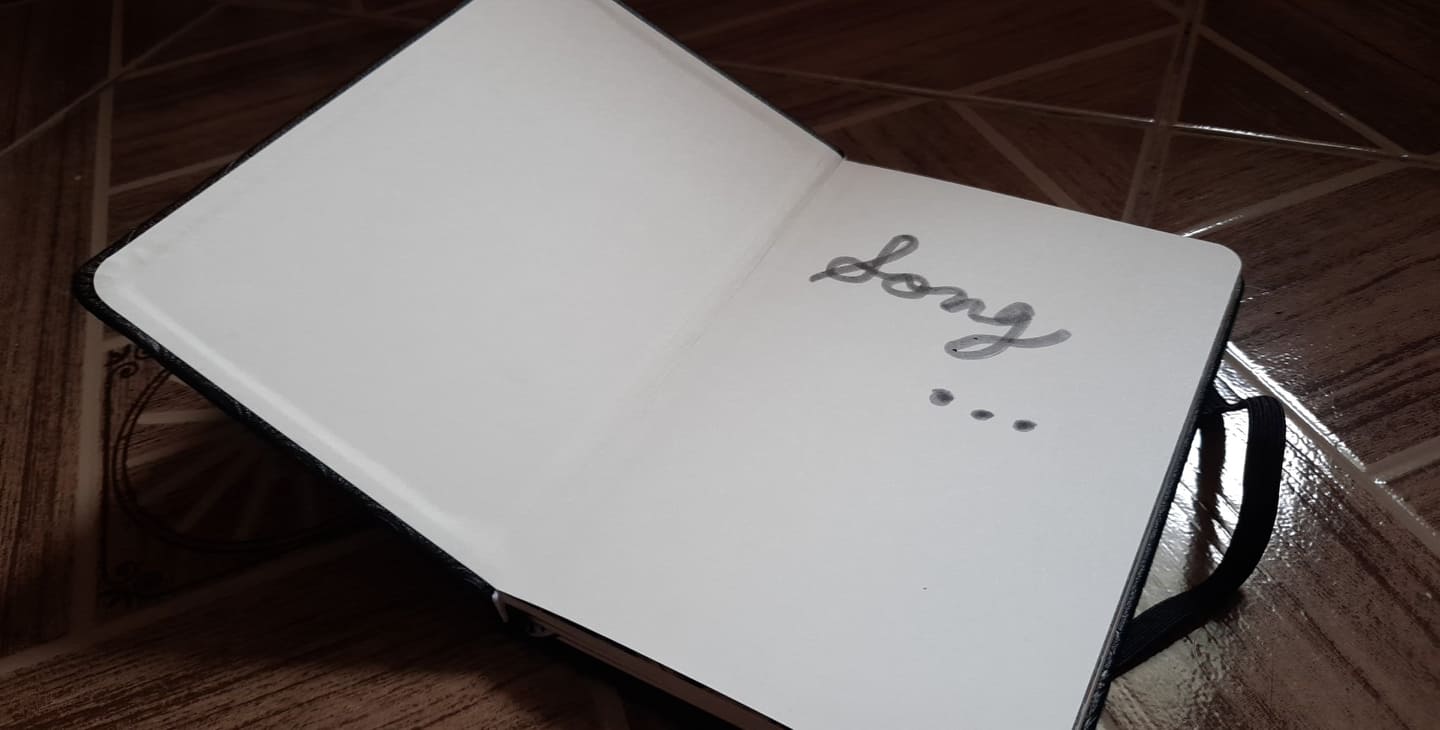 Song
...